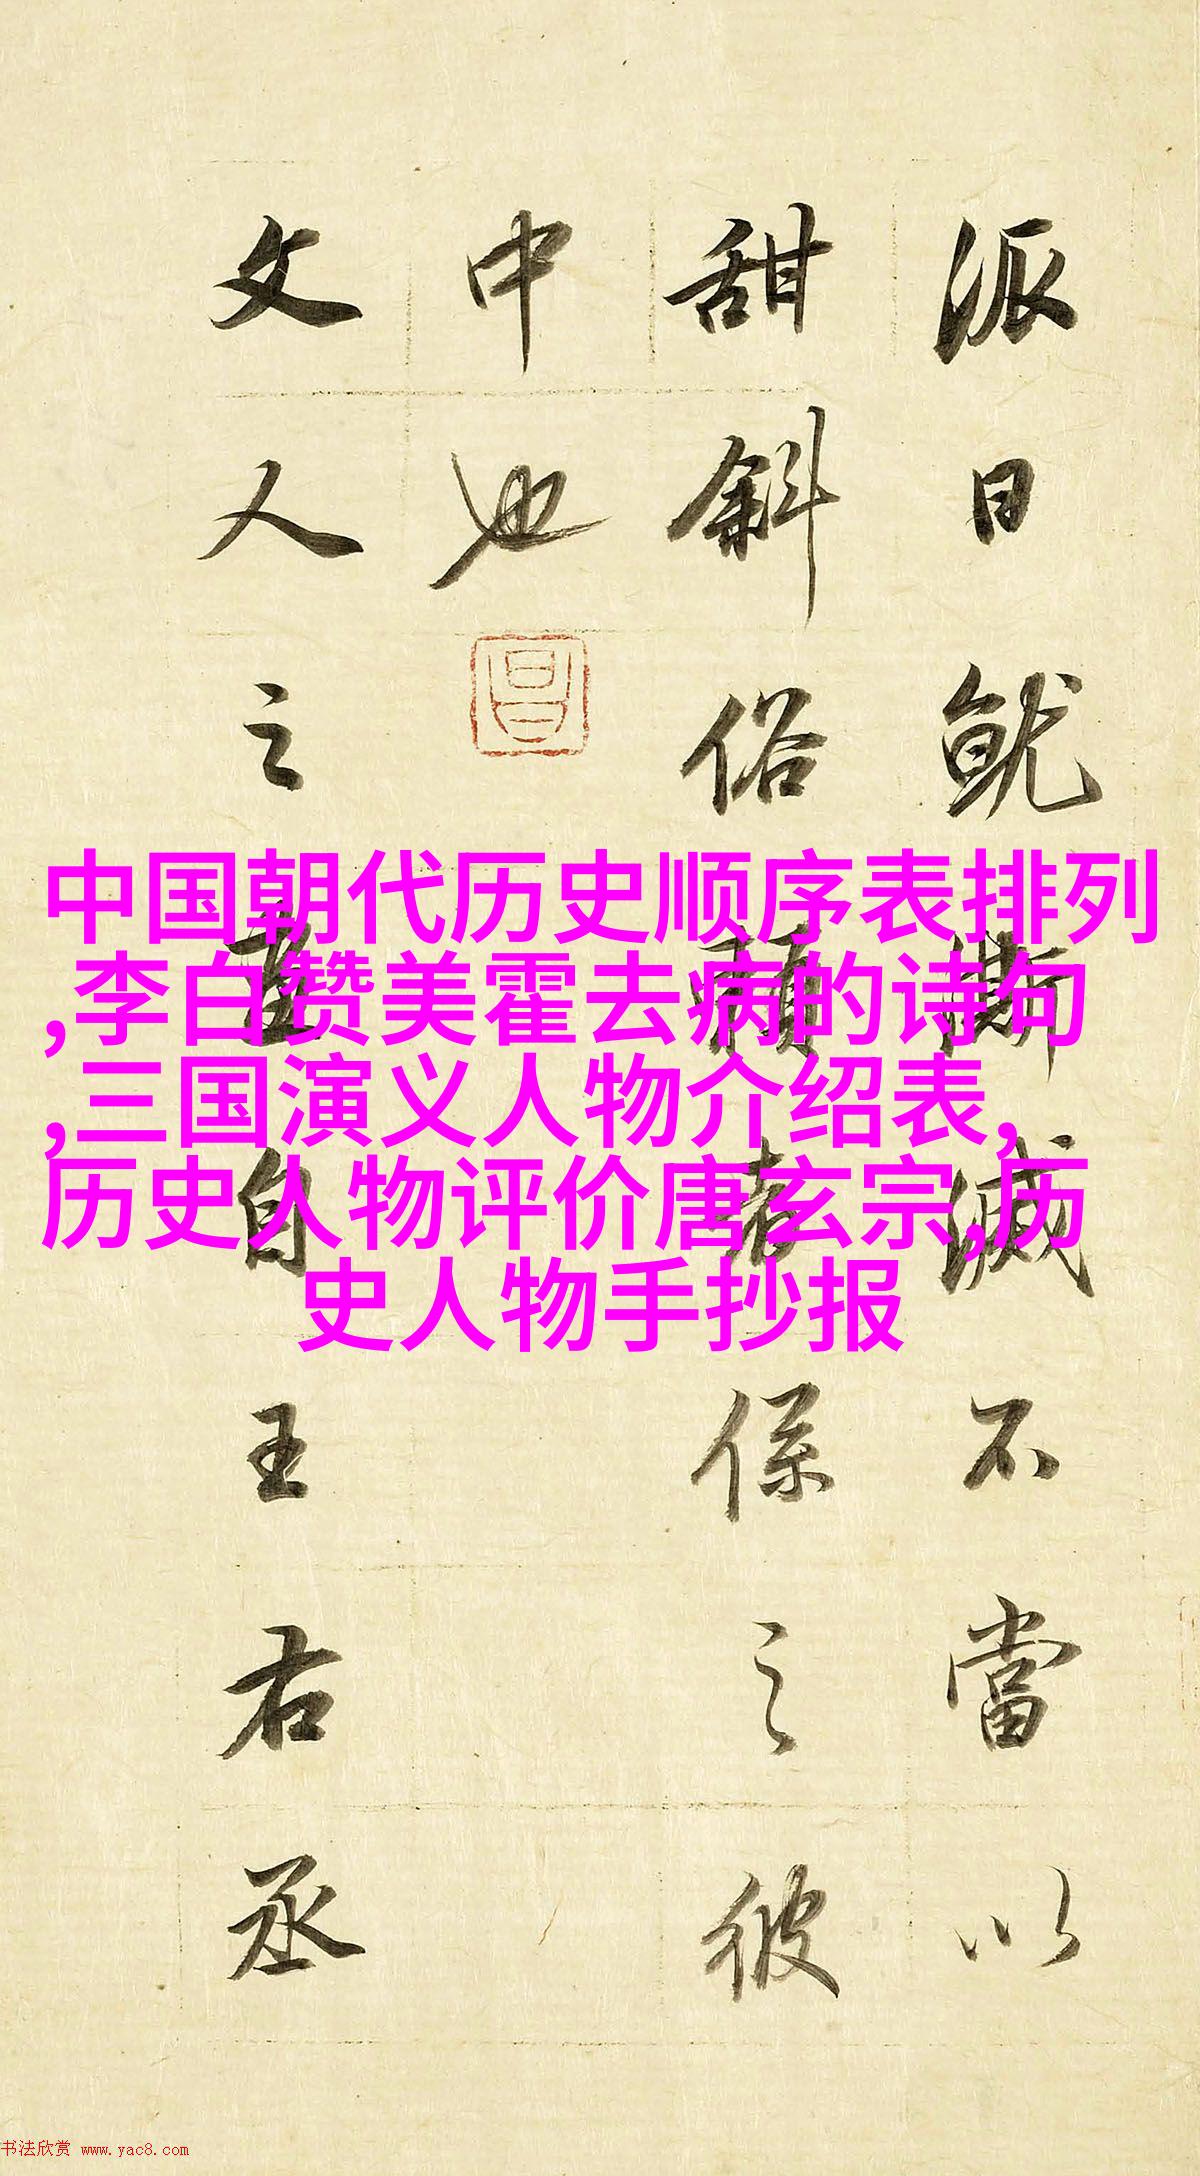 派日就澌滅不當以
甜斜俗賴者係之彼
中也
昌
文人之畫自王右丞
中国朝代历史顺序表排列
,李白赞美霍去病的诗句
,三国演义人物介绍表,
历史人物评价唐玄宗,历
史人物手抄报
书法欣赏 www.yac8.com